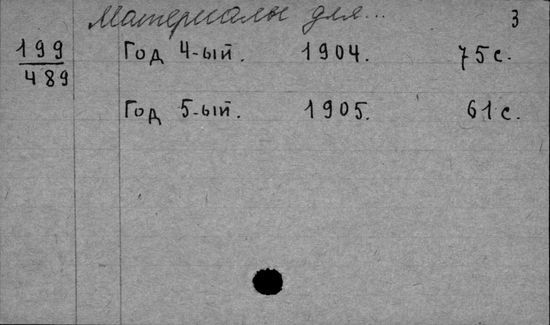 Материалы для... 3
199 Год 4-ый. 1904. 75 с.
489
Год 5-ый. 1905. 61 с.